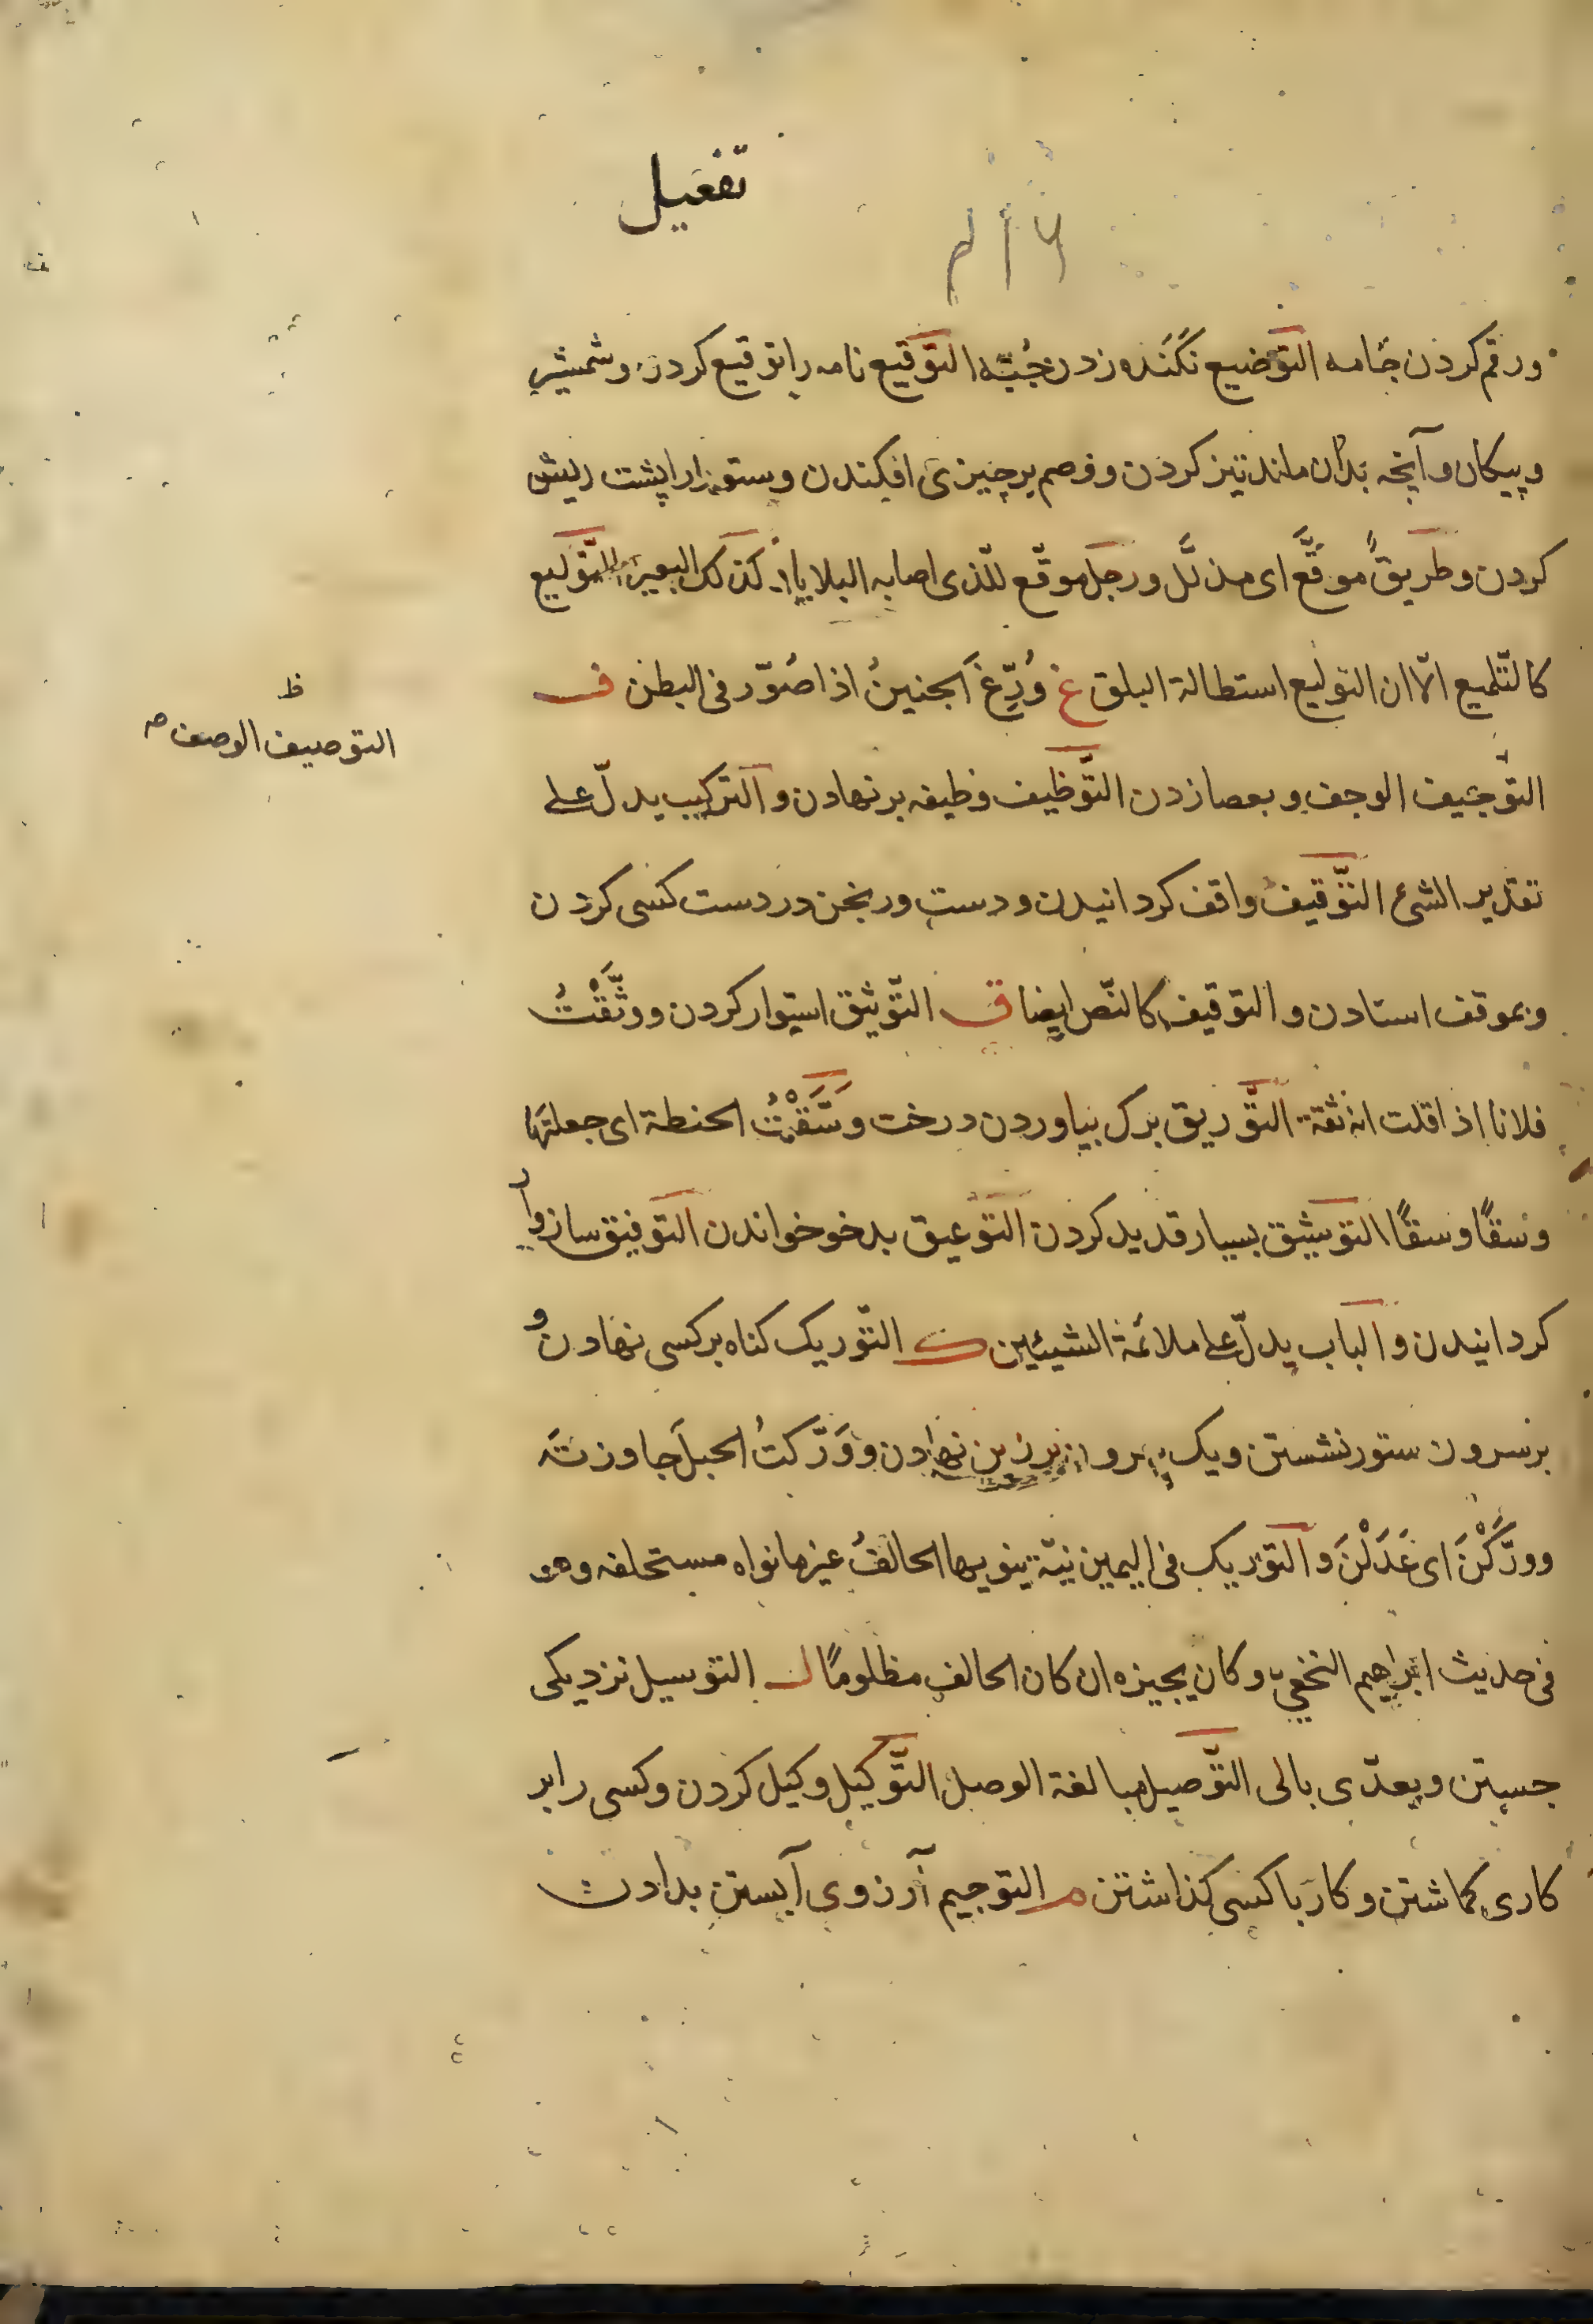 تفعیل
۲۱۶
ورقم کردن جامه التَّوضیع نگنده زدن جُبّه التَّوقیع نامه را توقیع کردن و شمشیر
و پیکان و آنچه بدان ماند تیز کردن و وهم بر چیزی افکندن و ستور را پشت ریش
کردن و طریقٌ موقَّعٌ ای مذلَّل و رجل موقّع للّذی اصابه البلایا و کذلک البعیر التَّولیع
کالتّلمیع الّا ان التولیع استطالة البلق غ وُدِّغَ الجنینُ اذا صُوّر فی البطن ف
التَّوجیف الوجف و بعصا زدن التَّوظیف وظیفه بر نهادن و الترکیب یدلّ علی
تقدیر الشیء التَّوقیف واقف کردانیدن و دست ورنجن در دست کسی کردن
و بموقف استادن و التوقیف کالنّص ایضا ق التّوثیق استوار کردن و وثَّقْتُ
فلانا اذا قلت انه ثقة التَّوریق برک بیاوردن درخت و وَسَّقْتُ الحنطة ای جعلتها
وسقًا وسقًا التوشیق بسیار قدید کردن التَّوعیق بدخو خواندن التوفیق سازوار
کردانیدن و الباب یدلّ علی ملائمة الشیئین ک التّوریک کناه بر کسی نهادن و
بر سرون ستور نشستن و یک سرون بر زمین نهادن و وَرَّکتُ الجبلَ جاوزتَه
و ورَّکْنَ ای عَدَلْنَ و التوریک فی الیمین نیّة ینویها الحالفُ غیر ما نواه مستحلفه و هو
فی حدیث ابراهیم النخعیّ و کان یجیزه ان کان الحالف مظلومًا ل التوسیل نزدیکی
جستن و یعدّی بالی التَّوصیل مبالغة الوصل التَّوکیل وکیل کردن و کسی را بر
کاری کماشتن و کار با کسی کذاشتن م التوجیم آرزوی آبستن بدادن
ظ
التوصیف الوصف صح